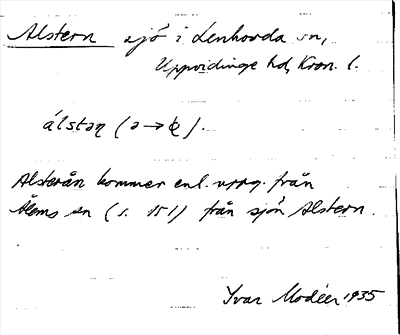 Alstern sjö i Lenhovda sn,
Uppvidinge hd, Kron. l.
álstən (ə→
Alsterån kommer enl. uppg. från
Ålems sn (s. 151) från sjön Alstern.
Ivar Modéer 1935